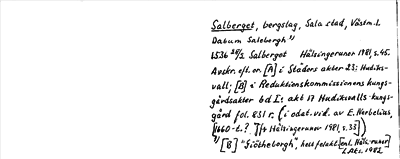 Salberget, bergslag, Sala stad, Västm.l.
Datum Saleborgh 1)
1536 28/2 Salberget Hälsingeruner 1981, s.45.
Avskr. eft. or. [A] i Städers akter 23: Hudiks-
vall; [B] i Reduktionskommissionens kungs-
gårdsakter bd I: akt 17 Hudiksvalls kungs-
gård fol. 851 r. (i odat. vid. av E. Norbelius,
1660-t.? Jfr Hälsingeruner 1981, s.33])
1) [B] "Giötheborgh", helt felakt [enl. Häls.runer]
L.Akt. 1982